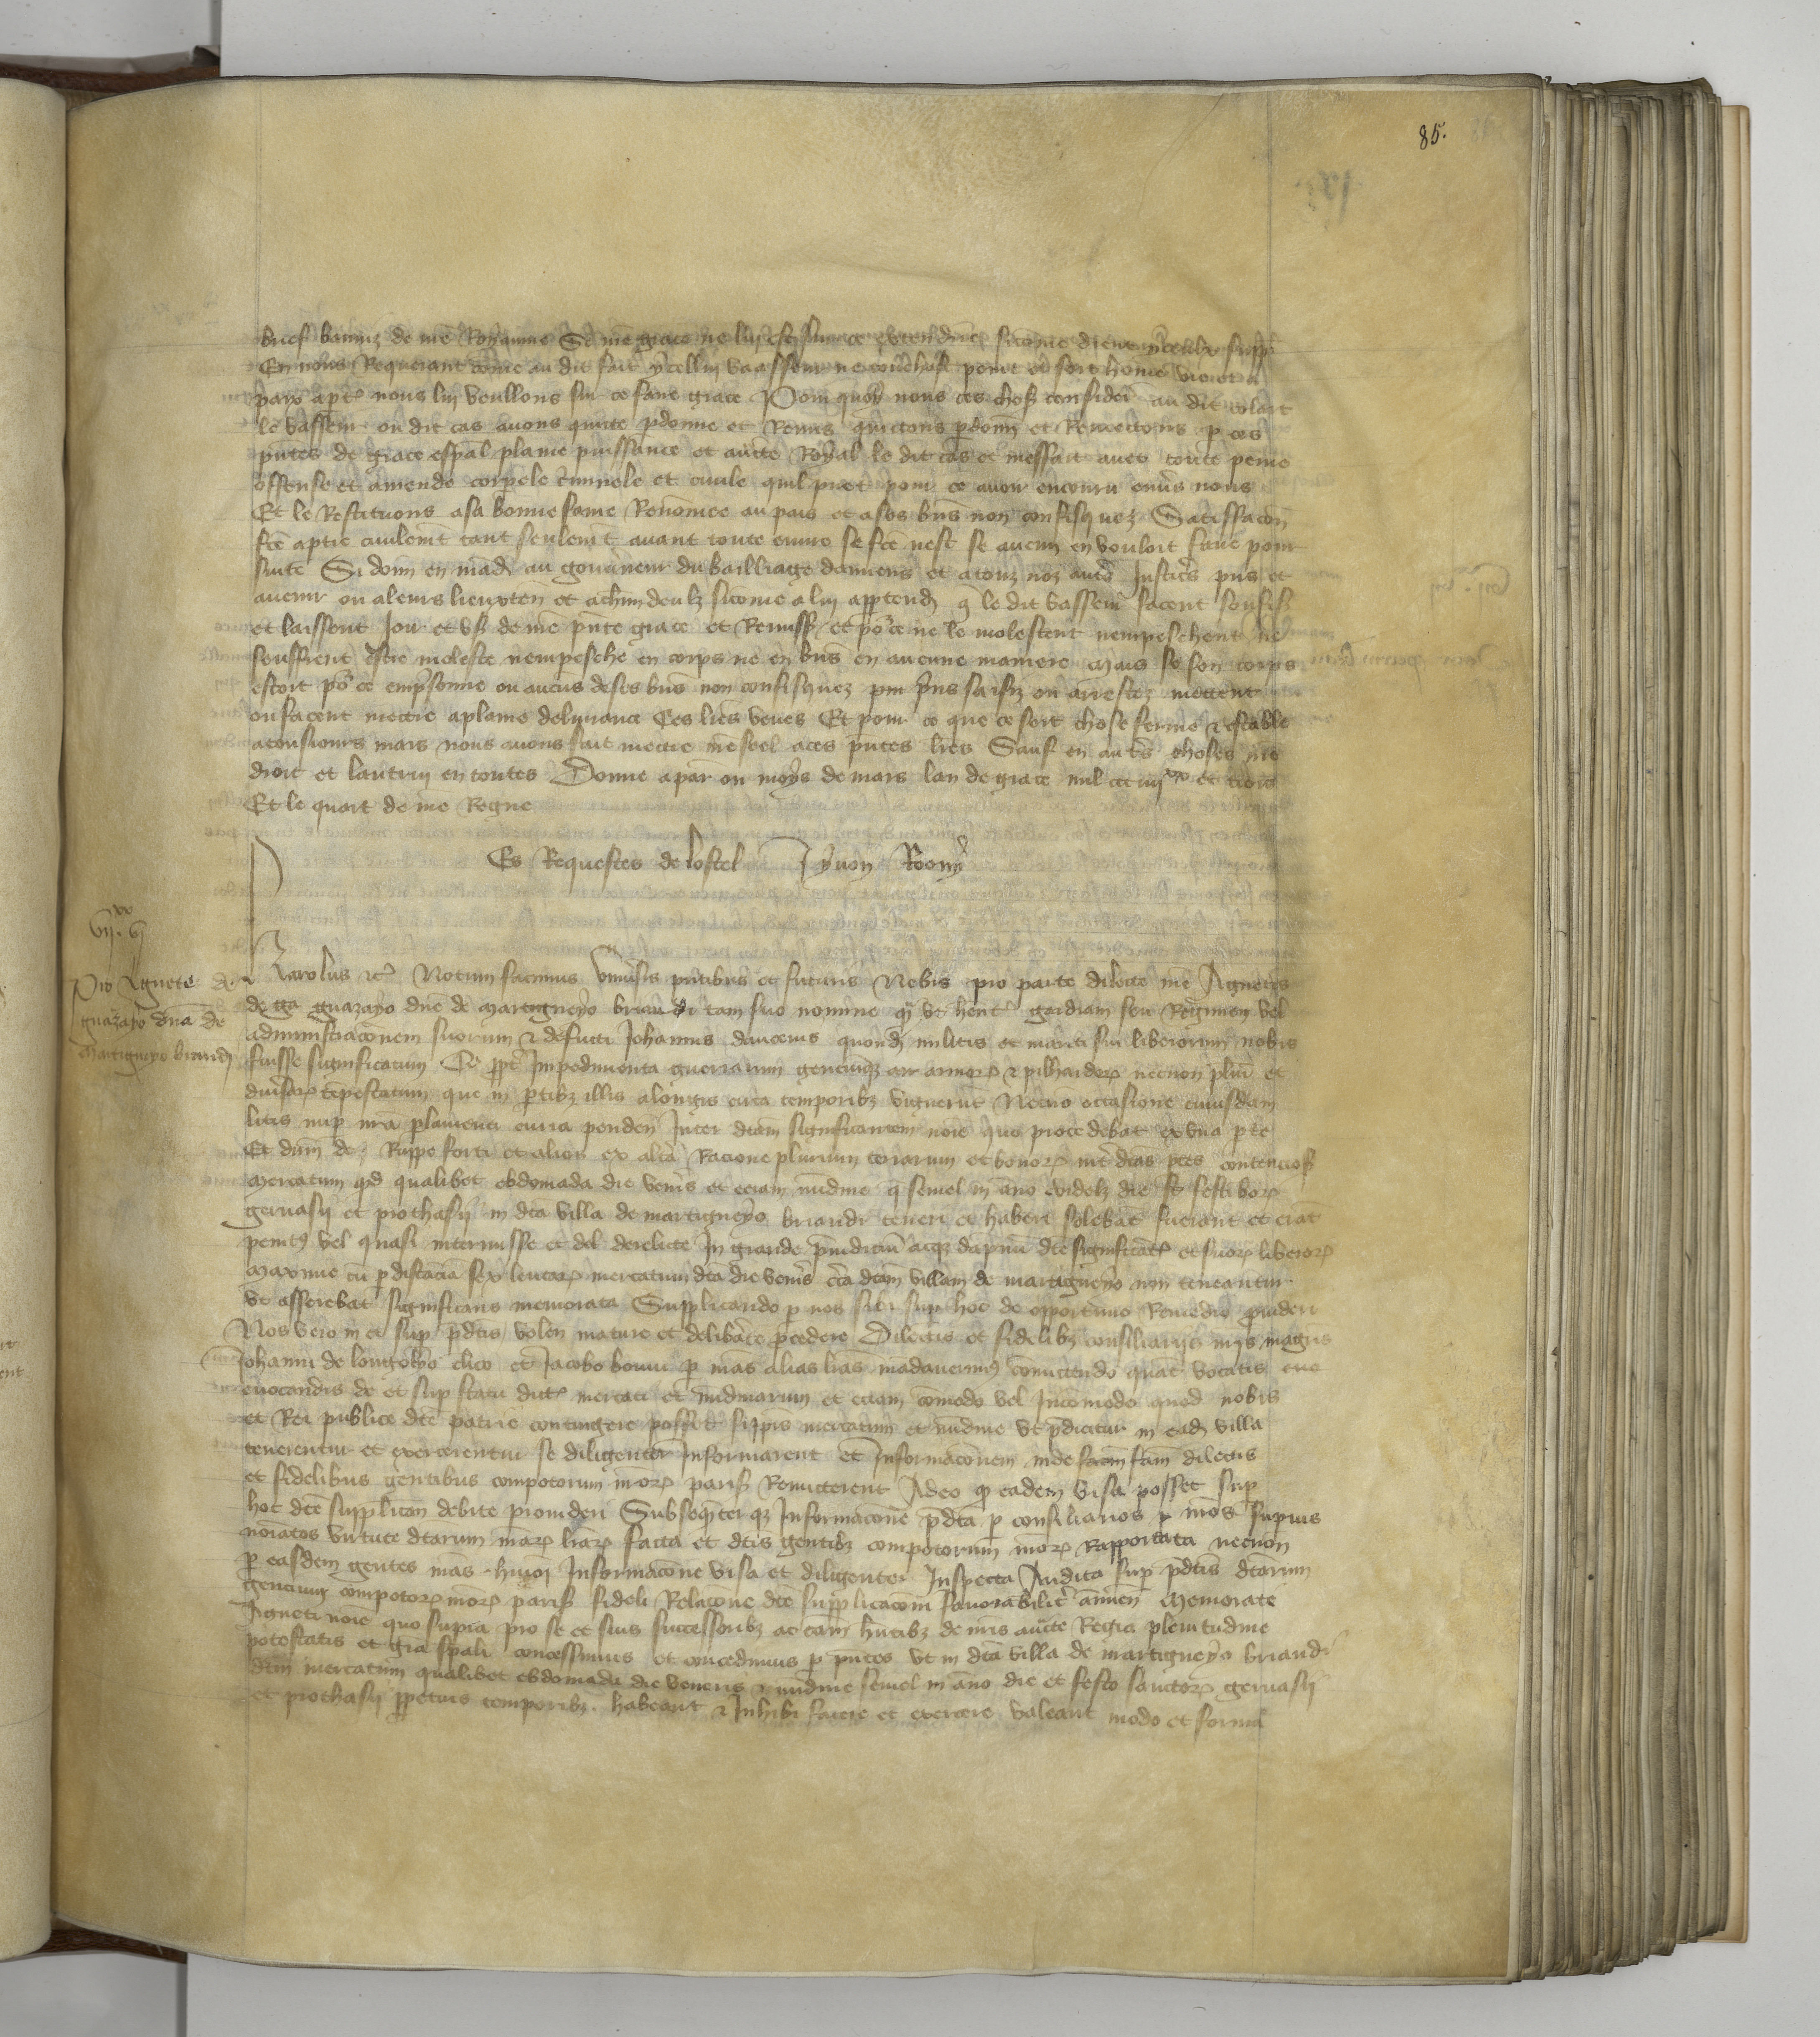 85.
buef banniz de nre Royaume Se nre grace ne lui est sur ce
En nous Requerant come au dit fait ycellui vasseur ne soit home
pays apres nous lui veullons sur ce faire grace Pour quoy nous ces choses consider au dit colart
le vasseur ou dit cas avons quitte pdonne et Remis quictons pdonn et Remectons p ces
pntes de grace espal plaine puissance et aucte Royal le dit cas et meffait avec toute peine
offense et amende corpele criminele et civile quil puet pour ce avoir encouru envers nous
Et le Restituons a sa bonne fame Renommee au pais et a ses bns non confisquez Satisfacon
fce a ptie civilemt tant seulemt avant toute euvre se fce nest se aucun en vouloit faire pour
suite Si donn en mand au gouverneur du bailliage damiens et a touz noz autres Justic pns et
avenir ou a leurs lieuxten et a chun deulz sicome a lui apptend q le dit vasseur facent
et laissent Joir et us de nre pnte grace et Remiss et po ce ne le molestent nempeschent ne
seuffrent estre moleste nempesche en corps ne en bns en aucune maniere Mais se son corps
estoit po ce empsonne ou aucuns de ses bns non confisquez pur pns saisiz ou arrestez mettent
ou facent mettre a plaine delivrance Ces lres veues Et pour ce que ce soit chose ferme et estable
a tousiours mais nous avons fait mettre nre seel a ces pntes lres Sauf en autres choses nre
droit et lautruy en toutes Donne a par ou moys de mars lan de grace mil ccc iiijxx et trois
Et le quart de nre Regne
Es Requestes de lostel Yvon Roony
vijxx vj
Pro Agnete de
guazayo dna de
Martigneyo briandi
Karolus etc Notum facimus universis pntibus et futuris Nobis pro parte dilecte nre Agnetis
de ga guazayo dne de Martigneyo briandi tam suo nomine q ut hent gardiam seu Regimen vel
administraconem suorum et defuncti Johannis dancenis quond militis et mariti sui liberorum nobis
fuisse significatum Q ppt Impedimenta guerrarum genciumqz armor et pilhardor necnon pluri et
diversar tempestatum que in ptibz illis a longis citra temporibz viguerunt Necno occasione cuiusdam
litis nup in nra plamenti curia penden Inter dcam significantem noie quo procedebat ex una pte
Et dnm de Ruppe forti et alion ex altera Racione plurium terrarum et bonor int dcas ptes contencios
Mercatum qd qualibet ebdomada die veneris et eciam nundine q semel in anno videlz die festi beor
gervasii et prothasii in dca villa de martigneyo briandi teneri et haberi solebat fuerant et erat
penitus vel quasi intermisse et del derelicte In grande pniudicium acqz dapnum dce significatis et suor liberor
Maxime cu p distancia sex leucar mercatum dca die veneris cca dcam villam de martigneyo non teneantur
ut asserebat significans memorata Supplicando p nos sibi sup hoc de opportuno Remedio provideri
Nos vero in et sup pdctis volen mature et deliberate pcedere Dilectis et fidelibz consiliariis nris magris
Johanni de longolio clico et Jacobo bonin p nras alias lras mandaverimus comittendo quat vocatis evo
evocandis de et sup statu dictor mercati et nundinarum et eciam comodo vel Incomodo quod nobis
et Rei publice dce patrie contingere posset si ipis mercatum et nundine ut pdicitur in ead villa
tenerentur et exercerentur se diligenter Informarent et Informaconem inde fcam dilectis
et fidelibus gentibus compotorum nror paris Remitterent Adeo q eadem visa posset sup
hoc dce supplican debite provideri Subsequenter qz Informacone pdca p consiliarios nros supius
noiatos virtute dcarum nrar lrar facta et dcis gentibz compotorum nror Rapportata necnon
p easdem gentes nras huioi Informacone visa et diligenter Inspecta Audita sup pdctis dcarum
gencium compotor nror paris fideli Relacone dce supplicaconi favorabiliter annuen Memorate
Agneti noie quo supra pro se et suis successoribz ac cam hntibz de nris aucte Regia plenitudine
potestatis et gra spali concessimus et concedimus p pntes ut in dca villa de martigneyo briandi
dcm mercatum qualibet ebdomada die veneris et nundine semel in anno die et festo sanctor gervasii
et prothasii ppetuis temporibz habeant et Inhibi facere et exercere valeant modo et forma